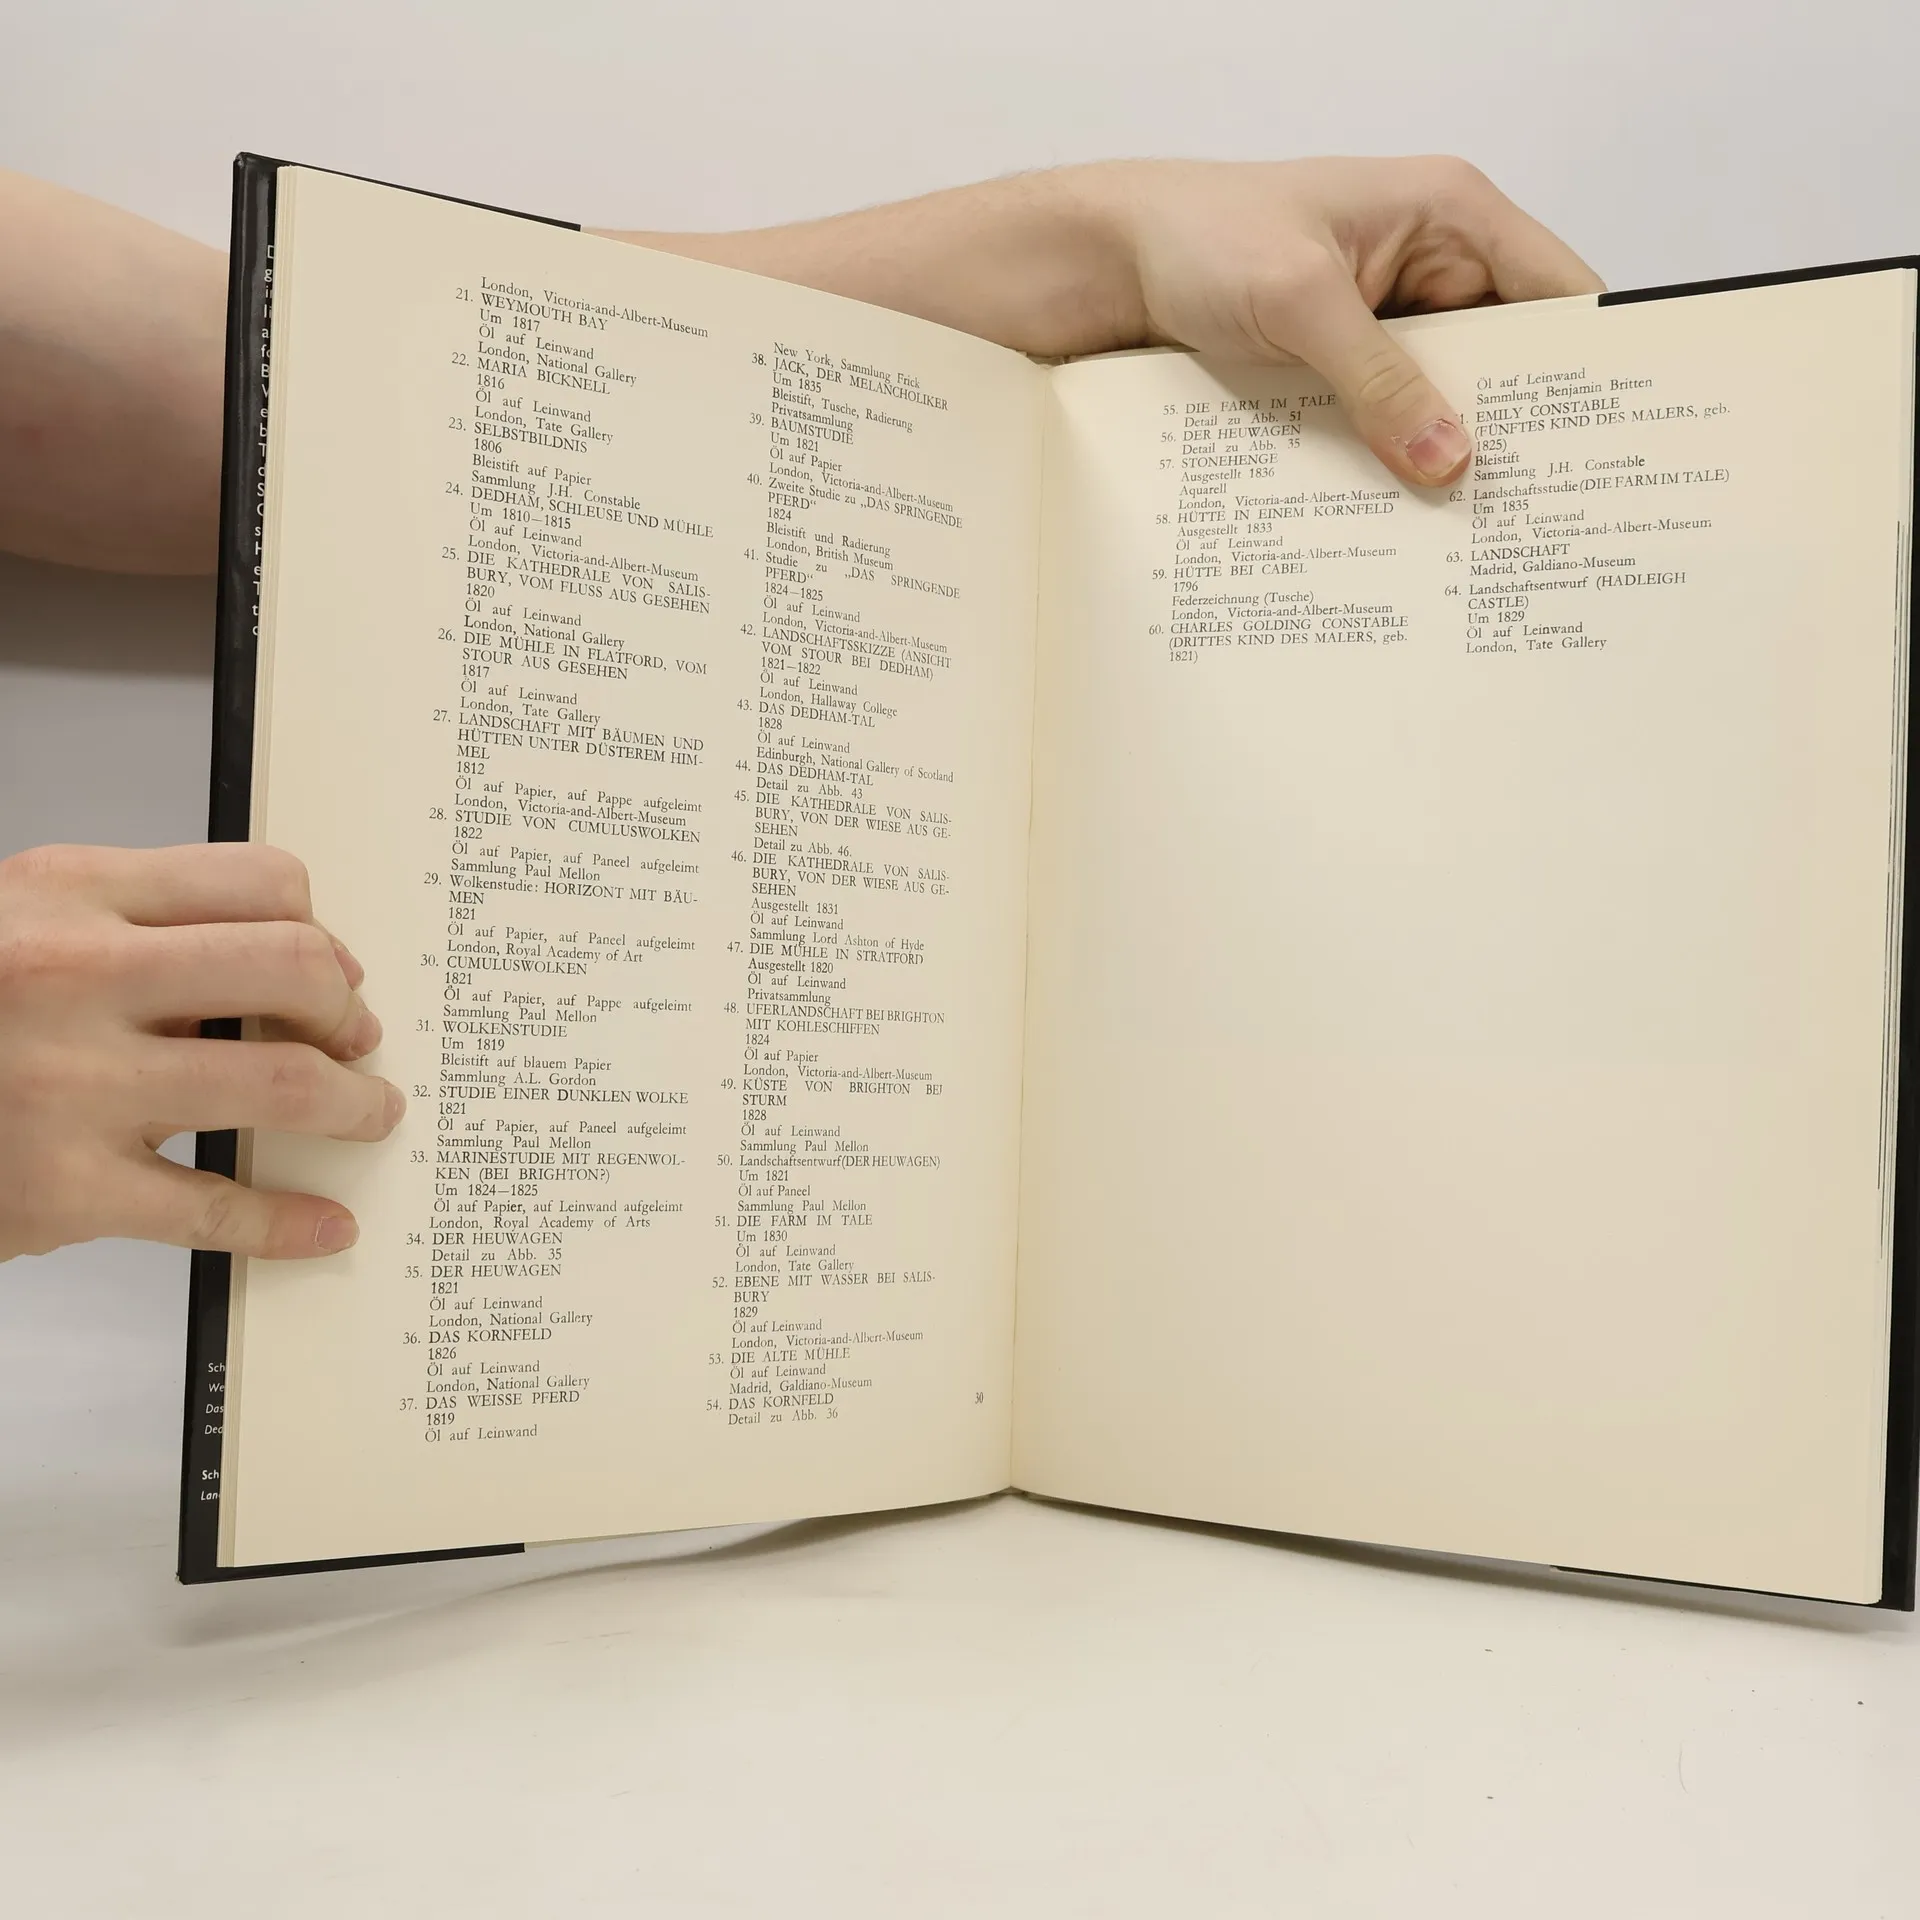 London, Victoria-and-Albert-Museum
21. WEYMOUTH BAY
Um 1817
Öl auf Leinwand
London, National Gallery
22. MARIA BICKNELL
1816
Öl auf Leinwand
London, Tate Gallery
23. SELBSTBILDNIS
1806
Bleistift auf Papier
Sammlung J.H. Constable
24. DEDHAM, SCHLEUSE UND MÜHLE
Um 1810—1815
Öl auf Leinwand
London, Victoria-and-Albert-Museum
25. DIE KATHEDRALE VON SALIS-
BURY, VOM FLUSS AUS GESEHEN
1820
Öl auf Leinwand
London, National Gallery
26. DIE MÜHLE IN FLATFORD, VOM
STOUR AUS GESEHEN
1817
Öl auf Leinwand
London, Tate Gallery
27. LANDSCHAFT MIT BÄUMEN UND
HÜTTEN UNTER DÜSTEREM HIM-
MEL
1812
Öl auf Papier, auf Pappe aufgeleimt
London, Victoria-and-Albert-Museum
28. STUDIE VON CUMULUSWOLKEN
1822
Öl auf Papier, auf Paneel aufgeleimt
Sammlung Paul Mellon
29. Wolkenstudie: HORIZONT MIT BÄU-
MEN
1821
Öl auf Papier, auf Paneel aufgeleimt
London, Royal Academy of Art
30. CUMULUSWOLKEN
1821
Öl auf Papier, auf Pappe aufgeleimt
Sammlung Paul Mellon
31. WOLKENSTUDIE
Um 1819
Bleistift auf blauem Papier
Sammlung A.L. Gordon
32. STUDIE EINER DUNKLEN WOLKE
1821
Öl auf Papier, auf Paneel aufgeleimt
Sammlung Paul Mellon
33. MARINESTUDIE MIT REGENWOL-
KEN (BEI BRIGHTON?)
Um 1824—1825
Öl auf Papier, auf Leinwand aufgeleimt
London, Royal Academy of Arts
34. DER HEUWAGEN
Detail zu Abb. 35
35. DER HEUWAGEN
1821
Öl auf Leinwand
London, National Gallery
36. DAS KORNFELD
1826
Öl auf Leinwand
London, National Gallery
37. DAS WEISSE PFERD
1819
Öl auf Leinwand
New York, Sammlung Frick
38. JACK, DER MELANCHOLIKER
Um 1835
Bleistift, Tusche, Radierung
Privatsammlung
39. BAUMSTUDIE
Um 1821
Öl auf Papier
London, Victoria-and-Albert-Museum
40. Zweite Studie zu „DAS SPRINGENDE
PFERD“
1824
Bleistift und Radierung
London, British Museum
41. Studie zu „DAS SPRINGENDE
PFERD“
1824—1825
Öl auf Leinwand
London, Victoria-and-Albert-Museum
42. LANDSCHAFTSSKIZZE (ANSICHT
VOM STOUR BEI DEDHAM)
1821—1822
Öl auf Leinwand
London, Hallaway College
43. DAS DEDHAM-TAL
1828
Öl auf Leinwand
Edinburgh, National Gallery of Scotland
44. DAS DEDHAM-TAL
Detail zu Abb. 43
45. DIE KATHEDRALE VON SALIS-
BURY, VON DER WIESE AUS GE-
SEHEN
Detail zu Abb. 46.
46. DIE KATHEDRALE VON SALIS-
BURY, VON DER WIESE AUS GE-
SEHEN
Ausgestellt 1831
Öl auf Leinwand
Sammlung Lord Ashton of Hyde
47. DIE MÜHLE IN STRATFORD
Ausgestellt 1820
Öl auf Leinwand
Privatsammlung
48. UFERLANDSCHAFT BEI BRIGHTON
MIT KOHLESCHIFFEN
1824
Öl auf Papier
London, Victoria-and-Albert-Museum
49. KÜSTE VON BRIGHTON BEI
STURM
1828
Öl auf Leinwand
Sammlung Paul Mellon
50. Landschaftsentwurf (DER HEUWAGEN)
Um 1821
Öl auf Paneel
Sammlung Paul Mellon
51. DIE FARM IM TALE
Um 1830
Öl auf Leinwand
London, Tate Gallery
52. EBENE MIT WASSER BEI SALIS-
BURY
1829
Öl auf Leinwand
London, Victoria-and-Albert-Museum
53. DIE ALTE MÜHLE
Öl auf Leinwand
Madrid, Galdiano-Museum
54. DAS KORNFELD
Detail zu Abb. 36
30
55. DIE FARM IM TALE
Detail zu Abb. 51
56. DER HEUWAGEN
Detail zu Abb. 35
57. STONEHENGE
Ausgestellt 1836
Aquarell
London, Victoria-and-Albert-Museum
58. HÜTTE IN EINEM KORNFELD
Ausgestellt 1833
Öl auf Leinwand
London, Victoria-and-Albert-Museum
59. HÜTTE BEI CABEL
1796
Federzeichnung (Tusche)
London, Victoria-and-Albert-Museum
60. CHARLES GOLDING CONSTABLE
(DRITTES KIND DES MALERS, geb.
1821)
Öl auf Leinwand
Sammlung Benjamin Britten
EMILY CONSTABLE
(FÜNFTES KIND DES MALERS, geb.
1825)
Bleistift
Sammlung J.H. Constable
62. Landschaftsstudie (DIE FARM IM TALE)
Um 1835
Öl auf Leinwand
London, Victoria-and-Albert-Museum
63. LANDSCHAFT
Madrid, Galdiano-Museum
64. Landschaftsentwurf (HADLEIGH
CASTLE)
Um 1829
Öl auf Leinwand
London, Tate Gallery